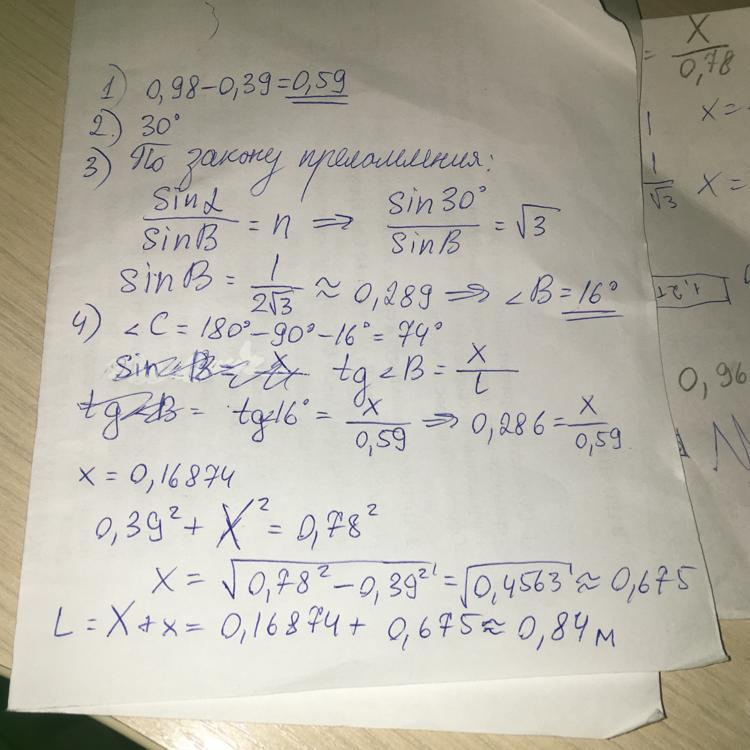 1) 0,98-0,39=0,59
2) 30°
3) По закону преломления:
sinα/sinB = n ⇒ sin30°/sinB = √3
sinB = 1/2√3 ≈ 0,289 ⇒ ∠B = 16°
4) ∠C = 180°-90°-16° = 74°
tg∠B = x/l
tg16° = x/0,59 ⇒ 0,286 = x/0,59
x = 0,16874
0,39² + X² = 0,78²
X = √0,78² - 0,39² = √0,4563 ≈ 0,675
L = X + x = 0,16874 + 0,675 ≈ 0,84 м
= X/0,78
1 X =
1/√3 X =
0,96